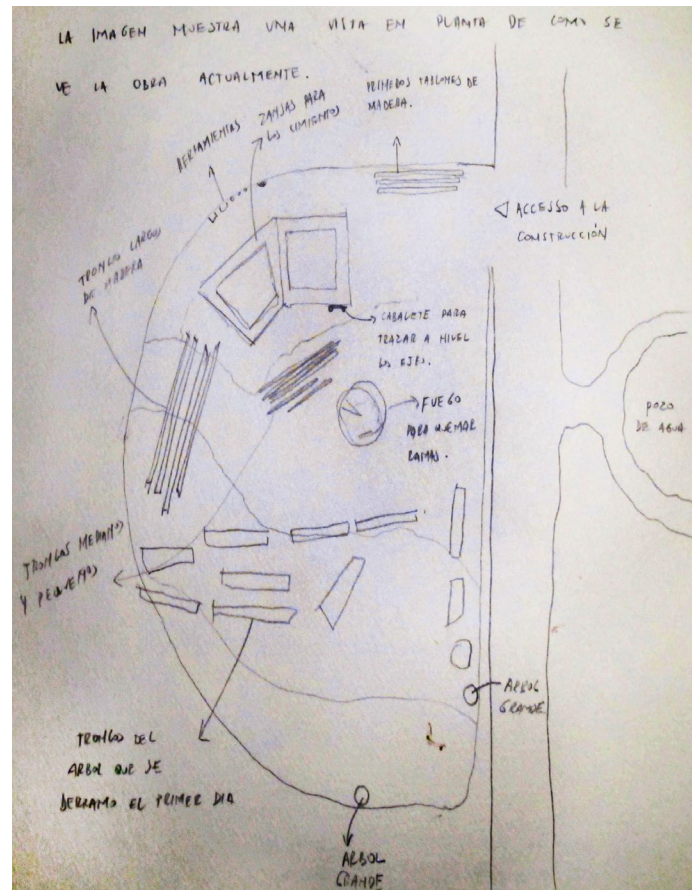 LA IMAGEN MUESTRA UNA VISTA EN PLANTA DE COMO SE
VE LA OBRA ACTUALMENTE.
PRIMEROS TABLONES DE
MADERA.
HERRAMIENTAS
ZANJAS PARA
LOS CIMIENTOS
ACCESSO A LA
CONSTRUCCIÓN
TRONCOS LARGOS
DE MADERA
CABALLETE PARA
TRAZAR A NIVEL
LOS EJES.
FUEGO
PARA QUEMAR
RAMAS.
POZO
DE AGUA
TRONCOS MEDIANOS
Y PEQUEÑOS
ARBOL
GRANDE
TRONCO DEL
ARBOL QUE SE
DERRAMO EL PRIMER DIA
ARBOL
GRANDE